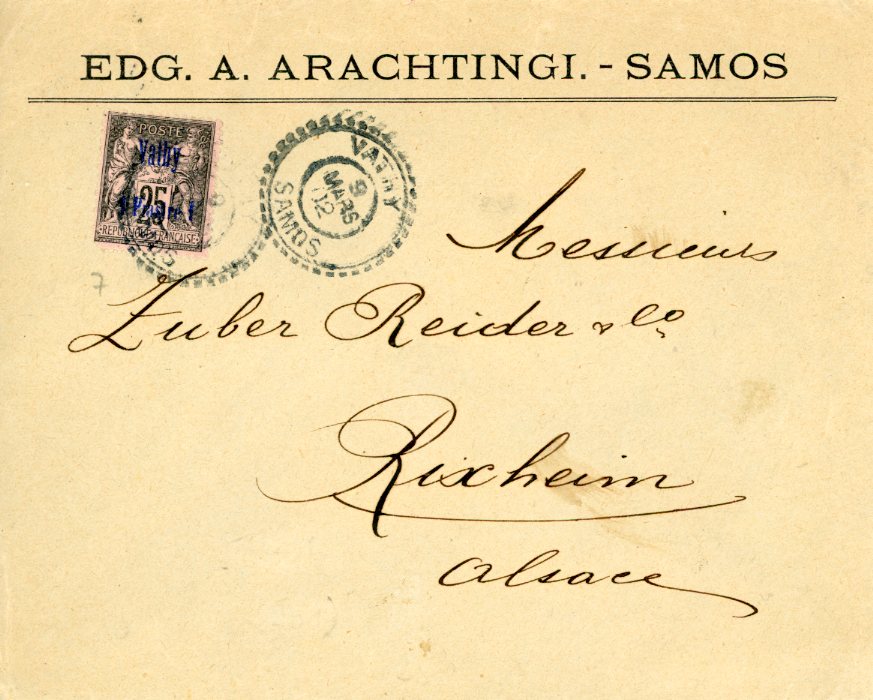 EDG. A. ARACHTINGI. - SAMOS
POSTE
Vathy
25
1 Piastre 1
REPUBLIQUE FRANÇAISE
VATHY
9
MARS
02
SAMOS
7
Messieurs
Zuber Reider & Co
Rixheim
Alsace